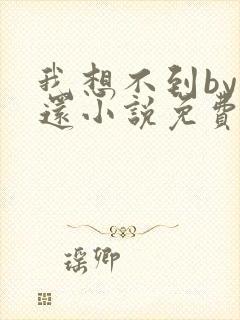 我想不到by
還小說免費
瑶卿